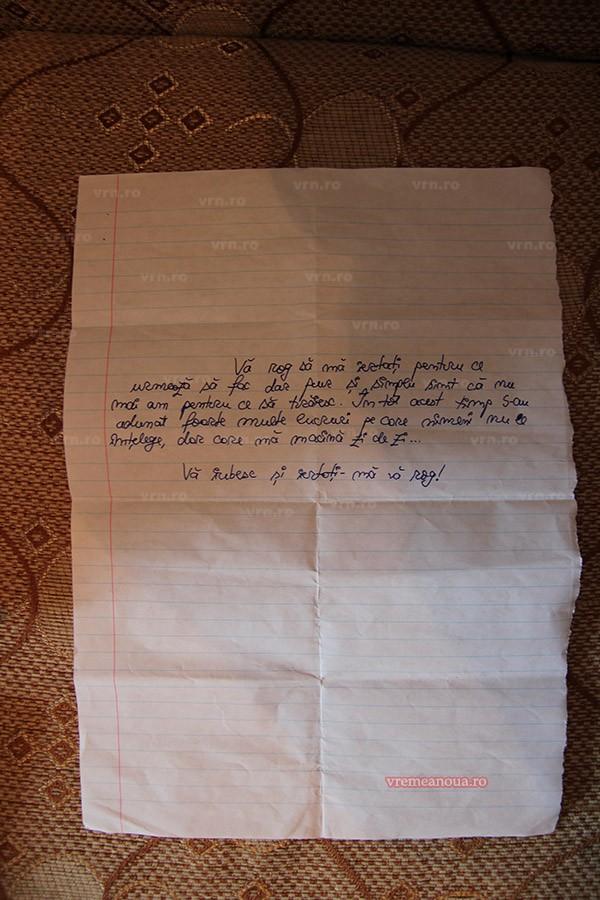 vrn.ro vrn.ro vrn.ro vrn.ro
vrn.ro vrn.ro vrn.ro vrn.ro
vrn.ro vrn.ro
Vă rog să mă iertați pentru ce
urmează să fac dar pur și simplu simt că nu
mai am pentru ce să trăiesc. În tot acest timp s-au
adunat foarte multe lucruri pe care nimeni nu le
înțelege, dar care mă macină zi de zi...
Vă iubesc și iertați-mă vă rog!
vremeanoua.ro